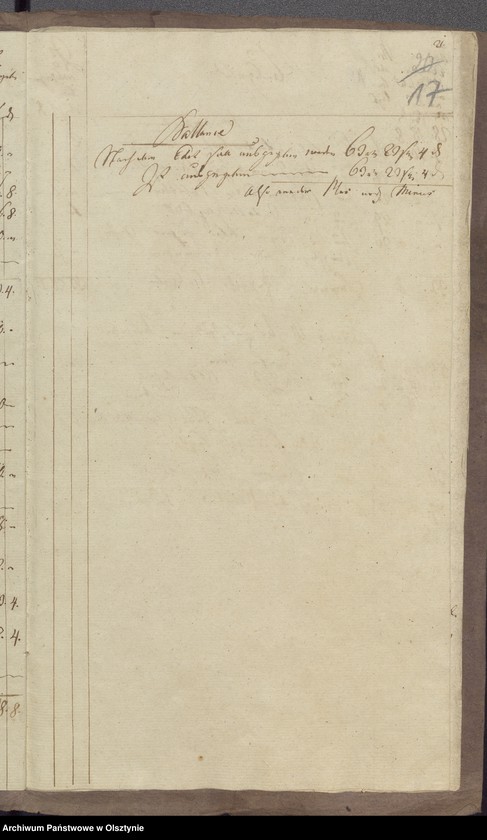 21
27
17
Ballance
Nach dem Etat soll ausgegeben werden 63 rt 23 sg. 4 d
Ist ausgegeben 63 rt 23 sg. 4 d
Also weder Plus noch Minus
8.
8.
4.
4.
4.
8. 8.
Archiwum Państwowe w Olsztynie